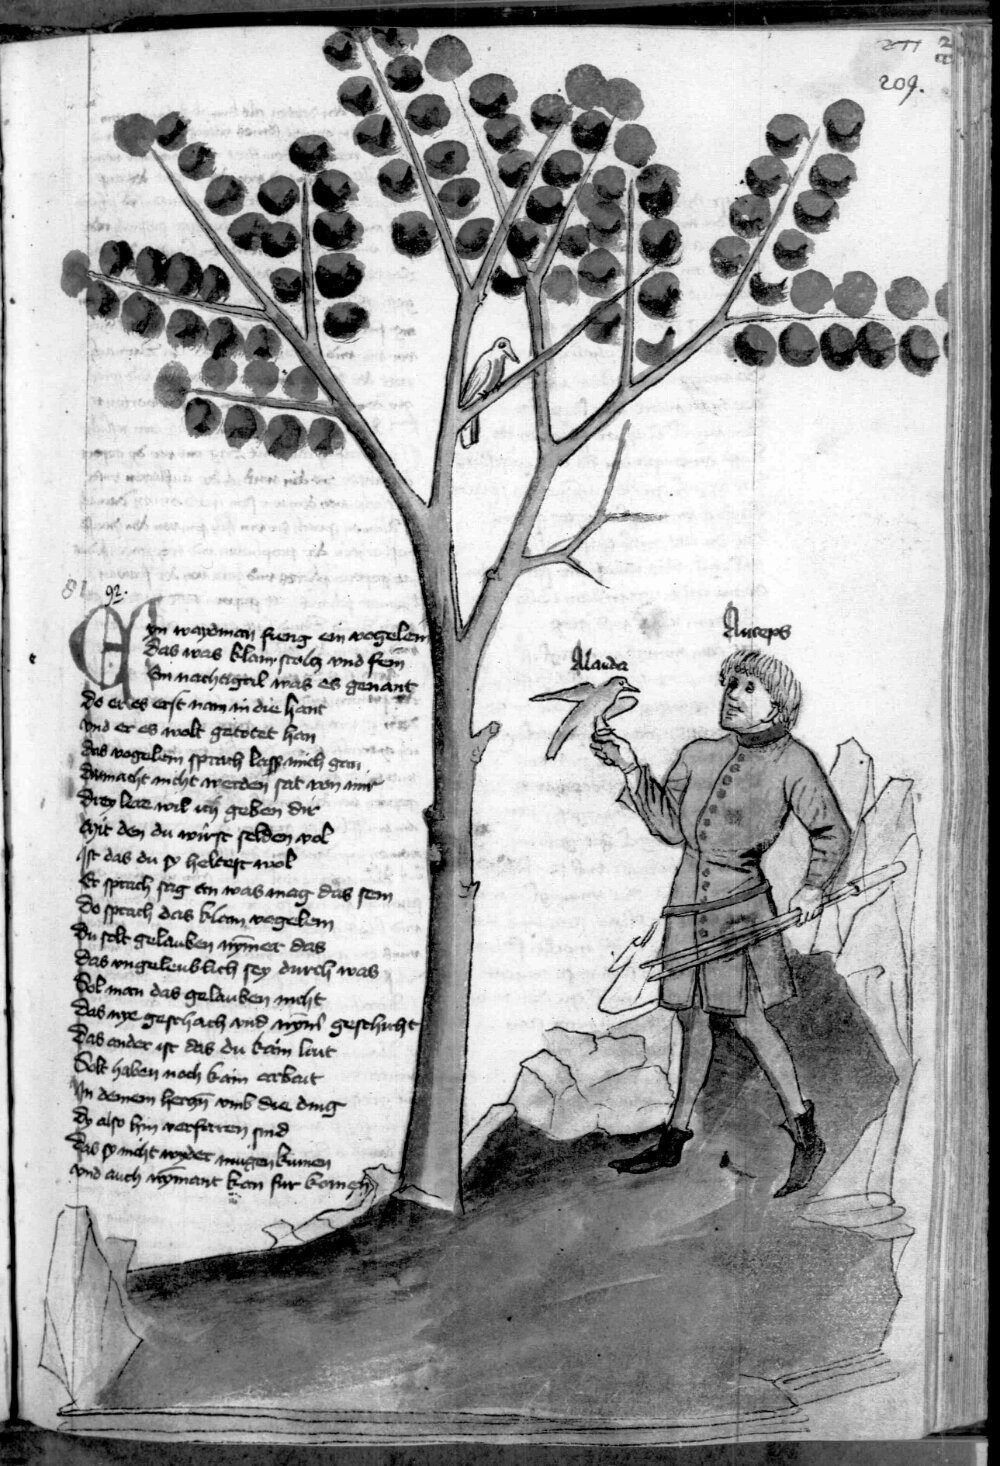 209.
92.
EYn waydman fieng ein vogelein
Das was klain stolcz vnd fein
Ein nachtigal was es genant
Do er es erst nam in die hant
vnd er es wolt getotet han
das vogelein sprach lass mich gan
Du macht nicht werden sat von mir
Drey lere wil ich geben dir
Mit den du wirst selden vol
Ist das du sy heltest wol
Er sprach sag an was mag das sein
Do sprach das klain vogelein
Du solt gelauben nymer das
das vngeleublich sey durch was
Sol man das gelauben nicht
Das nye geschach vnd nyml geschicht
Das ander ist das du kain laut
Solt haben noch kain erbait
In deinem herczn vmb die ding
Dy also hin verfaren sind
Das sy nicht wyder mugen kumen
vnd auch nymant kan fur komen
Alauda
Auceps